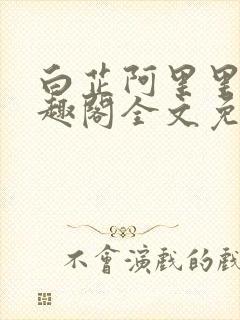 白芷阿里里
趣阁全文免
不會演戲的戲